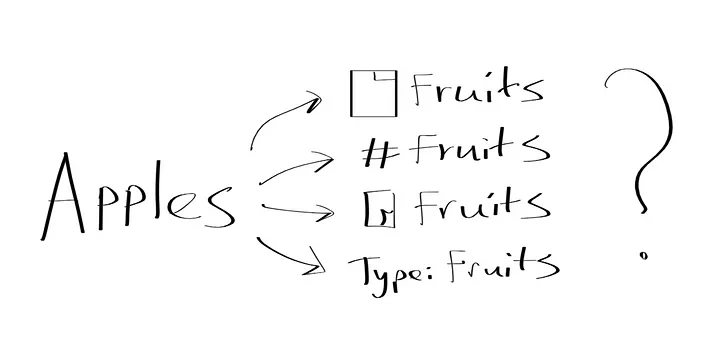 Apples
Fruits
# Fruits
Fruits
Type: Fruits
?